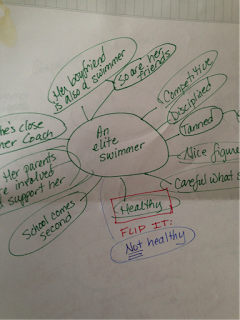 Her boyfriend
is also a swimmer
So are her
friends
Competitive
Disciplined
Tanned
Nice figure
Careful what
An
elite
swimmer
he's close
her coach
Her parents
are involved
support her
School comes
second
Healthy
FLIP IT:
Not healthy